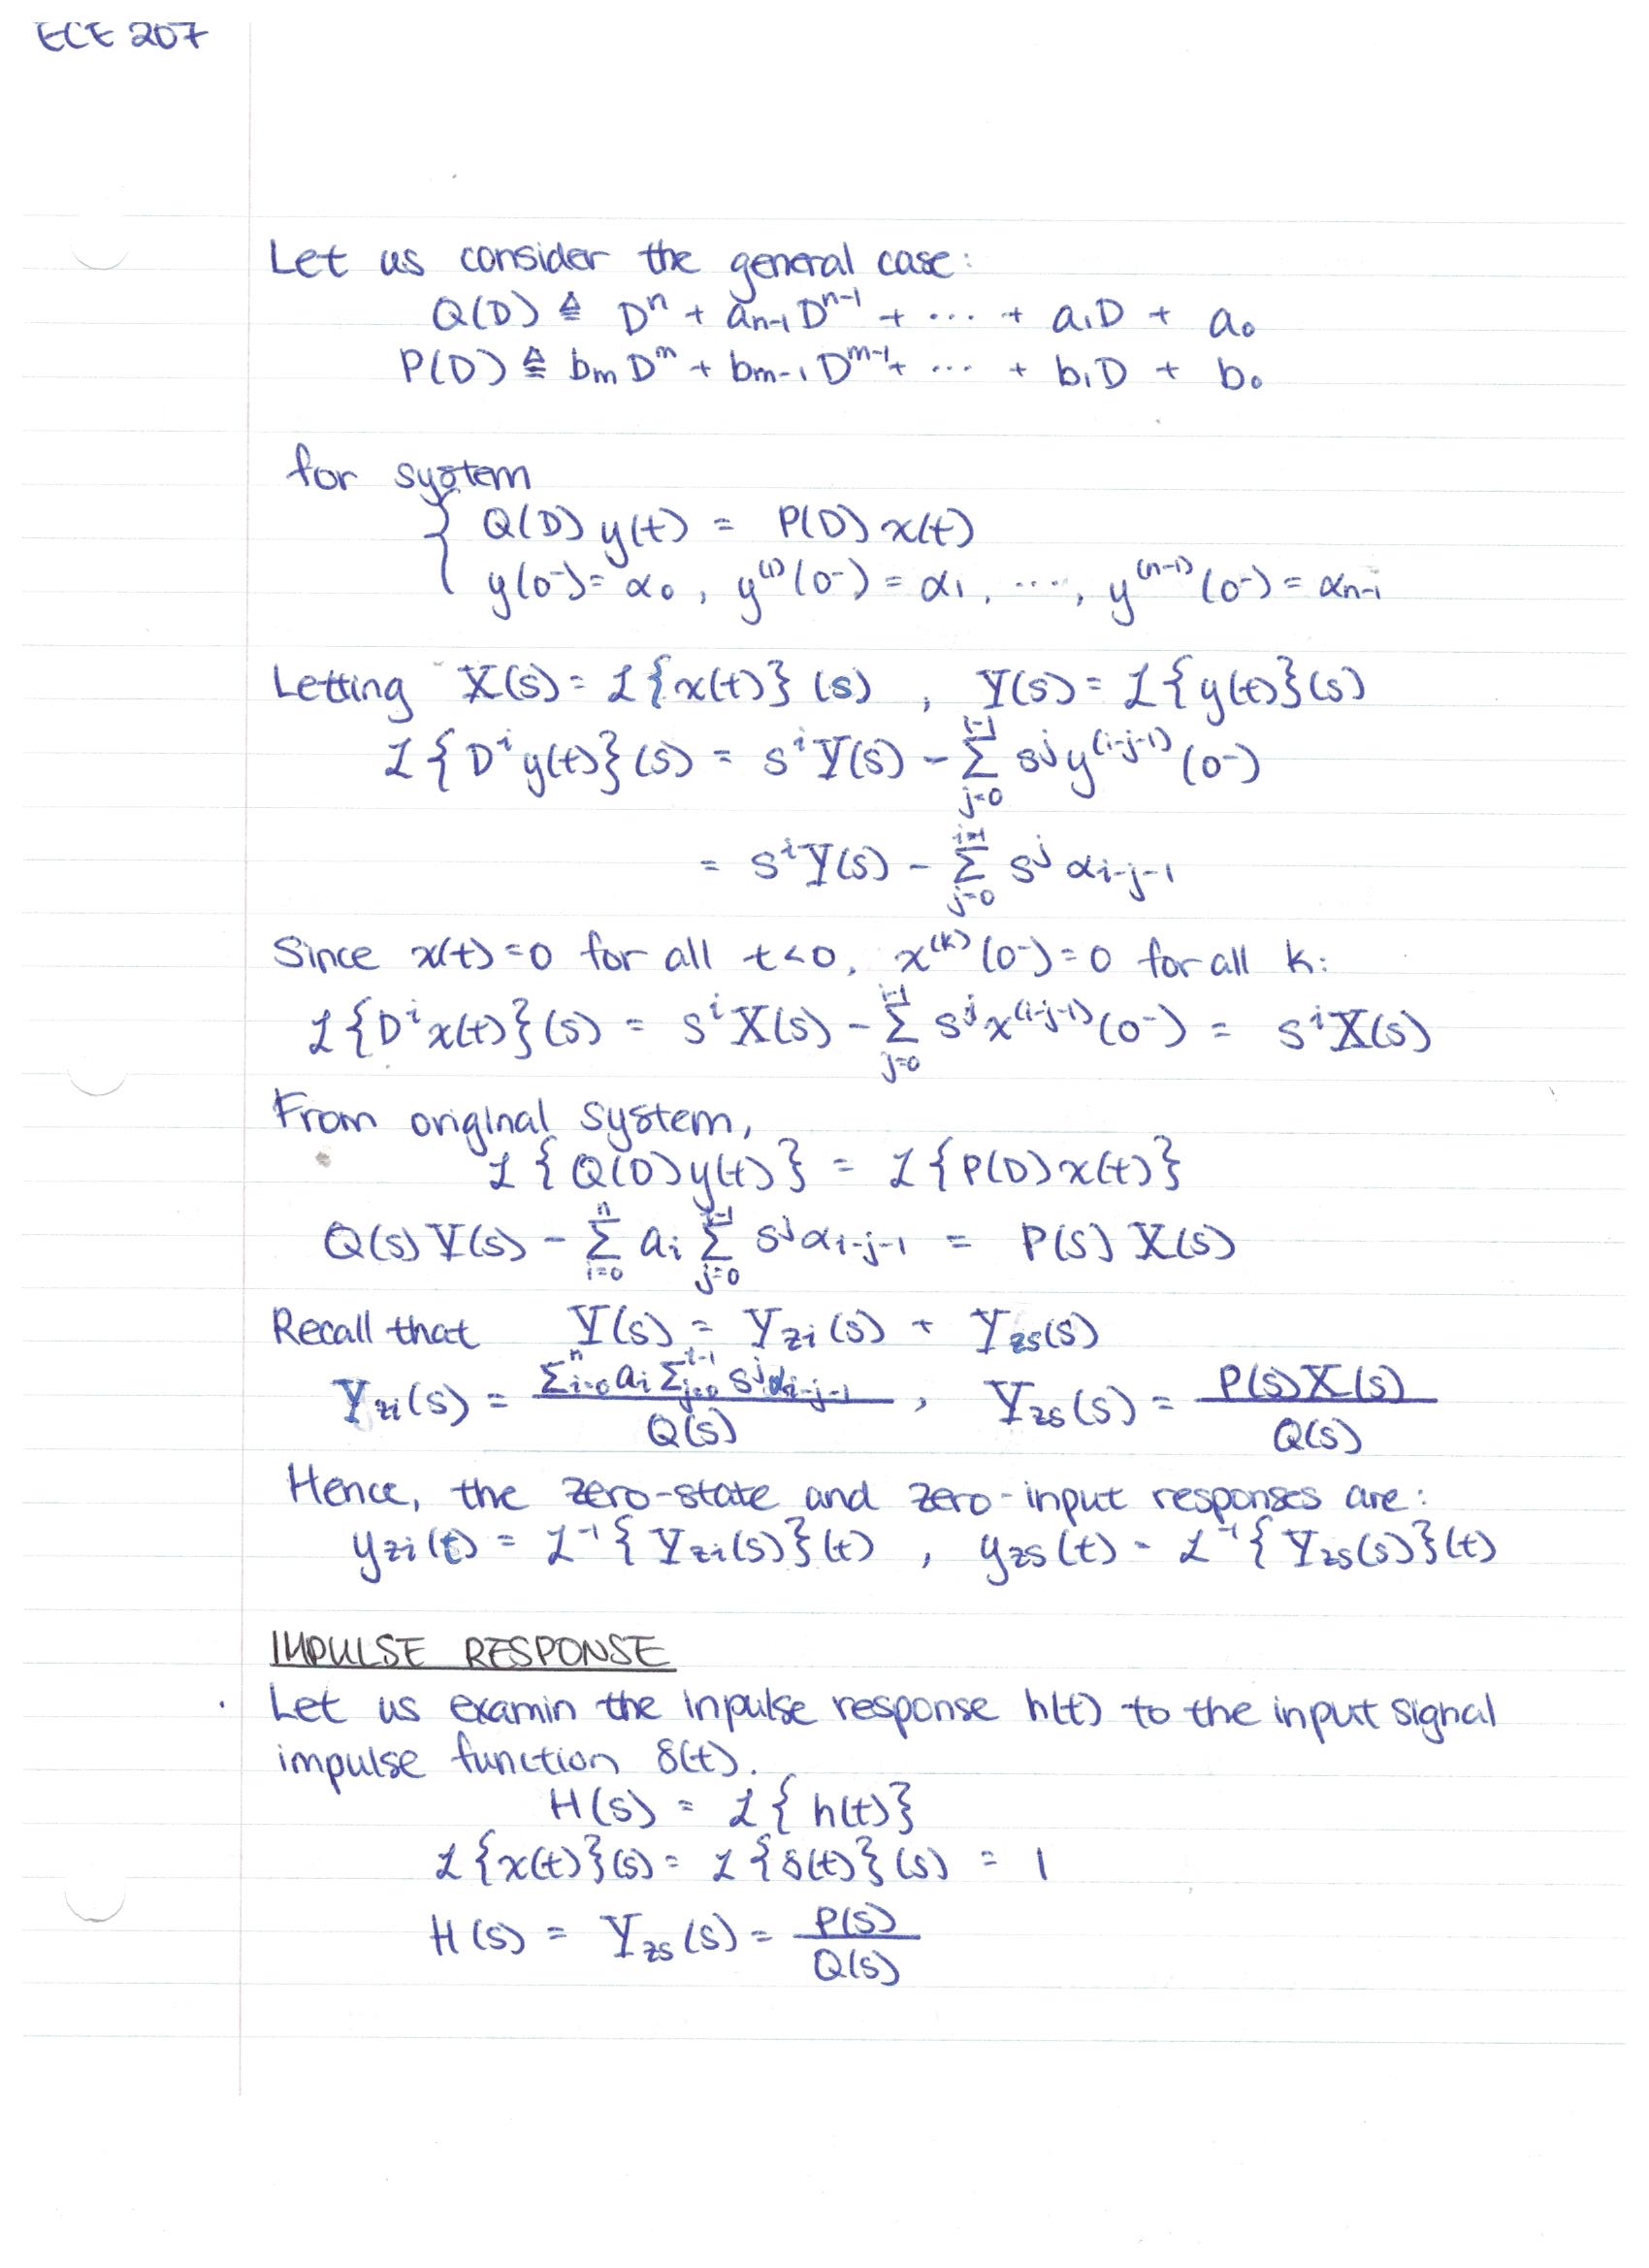 ECE 207
Let us consider the general case:
Q(D) ≜ Dⁿ + aₙ₋₁Dⁿ⁻¹ + ... + a₁D + a₀
P(D) ≜ bₘDᵐ + bₘ₋₁Dᵐ⁻¹ + ... + b₁D + b₀
for system
{ Q(D) y(t) = P(D) x(t)
y(0⁻) = α₀, y⁽¹⁾(0⁻) = α₁, ..., y⁽ⁿ⁻¹⁾(0⁻) = αₙ₋₁
Letting X(s) = ℒ{x(t)}(s), Y(s) = ℒ{y(t)}(s)
ℒ{Dⁱy(t)}(s) = sⁱY(s) - Σ_{j=0}^{i-1} sʲy^{(i-j-1)}(0⁻)
= sⁱY(s) - Σ_{j=0}^{i-1} sʲ α_{i-j-1}
Since x(t)=0 for all t<0, x⁽ᵏ⁾(0⁻)=0 for all k:
ℒ{Dⁱx(t)}(s) = sⁱX(s) - Σ_{j=0}^{i-1} sʲx^{(i-j-1)}(0⁻) = sⁱX(s)
From original system,
ℒ{Q(D)y(t)} = ℒ{P(D)x(t)}
Q(s)Y(s) - Σ_{i=0}^{n} aᵢ Σ_{j=0}^{i-1} sʲα_{i-j-1} = P(s)X(s)
Recall that Y(s) = Y_{zi}(s) + Y_{zs}(s)
Y_{zi}(s) = \frac{Σ_{i=0}^{n} aᵢ Σ_{j=0}^{i-1} sʲα_{i-j-1}}{Q(s)}, Y_{zs}(s) = \frac{P(s)X(s)}{Q(s)}
Hence, the zero-state and zero-input responses are:
y_{zi}(t) = ℒ⁻¹{Y_{zi}(s)}(t), y_{zs}(t) = ℒ⁻¹{Y_{zs}(s)}(t)
IMPULSE RESPONSE
· Let us examin the inpulse response h(t) to the input signal
impulse function δ(t).
H(s) = ℒ{h(t)}
ℒ{x(t)}(s) = ℒ{δ(t)}(s) = 1
H(s) = Y_{zs}(s) = \frac{P(s)}{Q(s)}